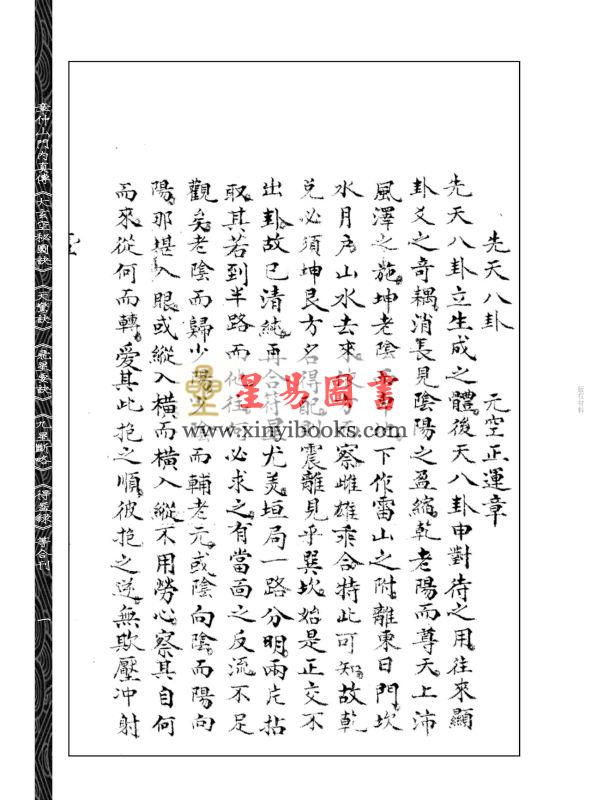 先天八卦 元空正運章
先天八卦立生成之體後天八卦申對待之用往來顯
卦爻之奇耦消長見陰陽之盈縮乾老陽而尊天上沛
風澤之施坤老陰 下作雷山之附離東日門坎
水月戶山水去來 察雌雄乘合特此可知故乾
兌必須坤艮方名得配 震離見乎巽坎始是正交不
出卦故已清純再合符 尤美垣局一路分明兩片拈
取其若到半路而他往 必求之有當面之反流不足
觀矣老陰而歸少陽 而輔老元或陰向陰而陽向
陽那堪入眼或縱入橫而橫入縱不用勞心察其自何
而來從何而轉愛其此抱之順彼抱之逆無欺壓冲射
星易圖書
www.xinyibooks.com
章仲山門內真傳《大玄空秘圖訣》《天驚訣》《飛星要訣》《九星斷略》《得益錄》等合刊
一
版权材料